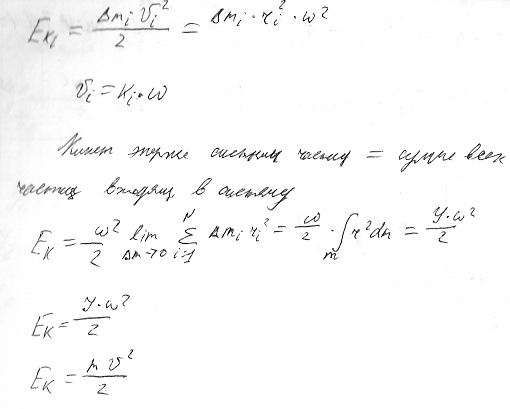 Eк₁ = Δmᵢ 𝒱ᵢ² / 2 = Δmᵢ · rᵢ² · ω²
𝒱ᵢ = Kᵢ · ω
Кинет энергие системы частиц = сумме всех
частиц входящ в систему
Eк = ω²/2 lim Δm→0 Σ i=1 N Δmᵢ rᵢ² = ω/2 · ∫m r² dm = Y·ω²/2
Eк = Y·ω²/2
Eк = m 𝒱²/2